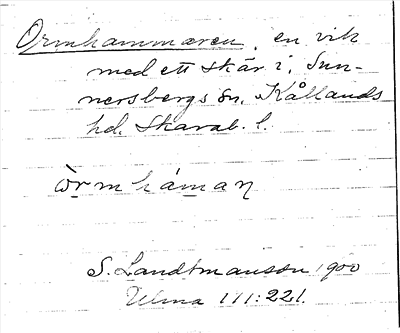 Ormhammaren, en vik
med ett skär i, Sun-
nersbergs sn, Kållands
hd. Skarab. l.
òrmháman
S. Landtmanson 1900
Ulma 111:221.